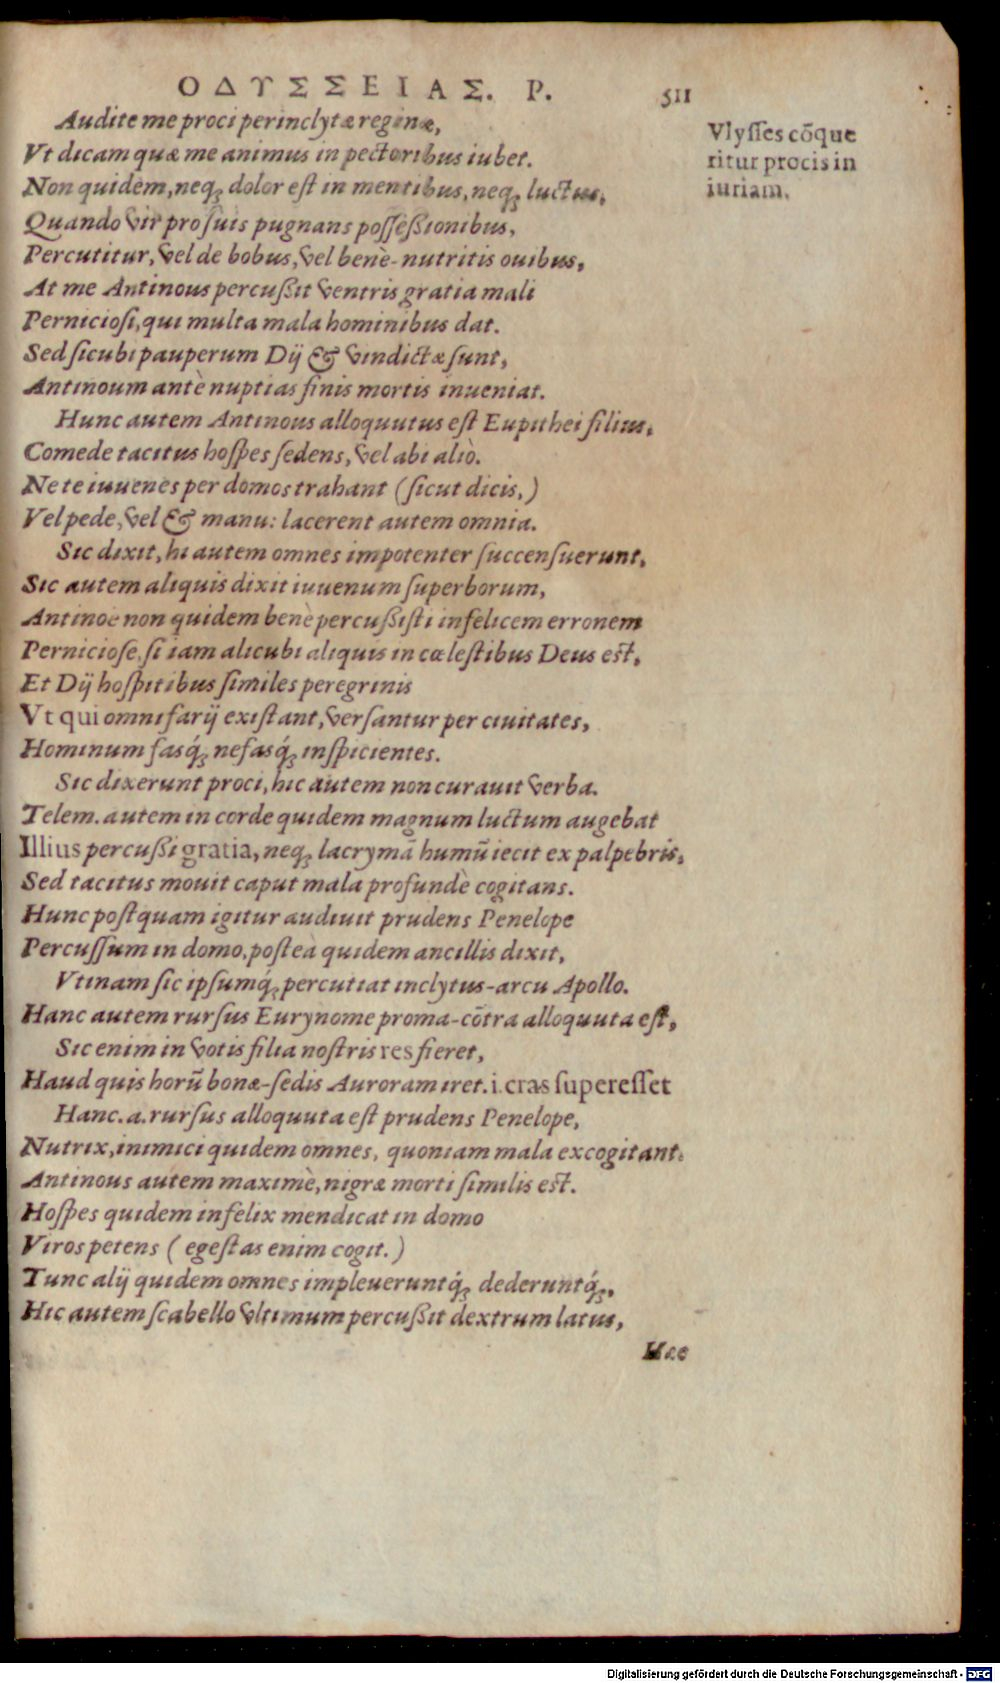 ΟΔΥΣΣΕΙΑΣ. Ρ. 511
Audite me proci perinclytæ reginæ,
Vt dicam quæ me animus in pectoribus iubet.
Non quidem, neq; dolor est in mentibus, neq; luctus,
Quando vir pro suis pugnans possessionibus,
Percutitur, vel de bobus, vel benè-nutritis ouibus,
At me Antinous percussit ventris gratia mali
Perniciosi, qui multa mala hominibus dat.
Sed sicubi pauperum Dij & vindictæ sunt,
Antinoum antè nuptias finis mortis inueniat.
Hunc autem Antinous alloquutus est Eupithei filius,
Comede tacitus hospes sedens, vel abi aliò.
Ne te iuuenes per domos trahant (sicut dicis,)
Vel pede, vel & manu: lacerent autem omnia.
Sic dixit, hi autem omnes impotenter succensuerunt,
Sic autem aliquis dixit iuuenum superborum,
Antinoe non quidem benè percussisti infelicem erronem
Perniciose, si iam alicubi aliquis in cœlestibus Deus est,
Et Dij hospitibus similes peregrinis
Vt qui omnifarij existant, versantur per ciuitates,
Hominum fasq́; nefasq́; inspicientes.
Sic dixerunt proci, hic autem non curauit verba.
Telem. autem in corde quidem magnum luctum augebat
Illius percussi gratia, neq; lacrymā humū iecit ex palpebris,
Sed tacitus mouit caput mala profundè cogitans.
Hunc postquam igitur audiuit prudens Penelope
Percussum in domo, posteà quidem ancillis dixit,
Vtinam sic ipsumq́; percutiat inclytus-arcu Apollo.
Hanc autem rursus Eurynome proma-cōtra alloquuta est,
Sic enim in votis filia nostris res fieret,
Haud quis horū bonæ-sedis Auroram iret. i. cras superesset
Hanc. a. rursus alloquuta est prudens Penelope,
Nutrix, inimici quidem omnes, quoniam mala excogitant.
Antinous autem maximè, nigræ morti similis est.
Hospes quidem infelix mendicat in domo
Viros petens ( egestas enim cogit.)
Tunc alij quidem omnes impleueruntq́; dederuntq́;,
Hic autem scabello vltimum percussit dextrum latus,
Hæc
Vlysses cōque
ritur procis in
iuriam.
Digitalisierung gefördert durch die Deutsche Forschungsgemeinschaft - DFG